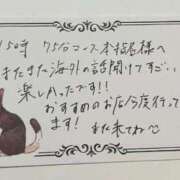 15時 75分コース 本指名様へ
またまた海外の話聞けてすごい
楽しかったです!!
おすすめのお店今度行って
ます! また来てね